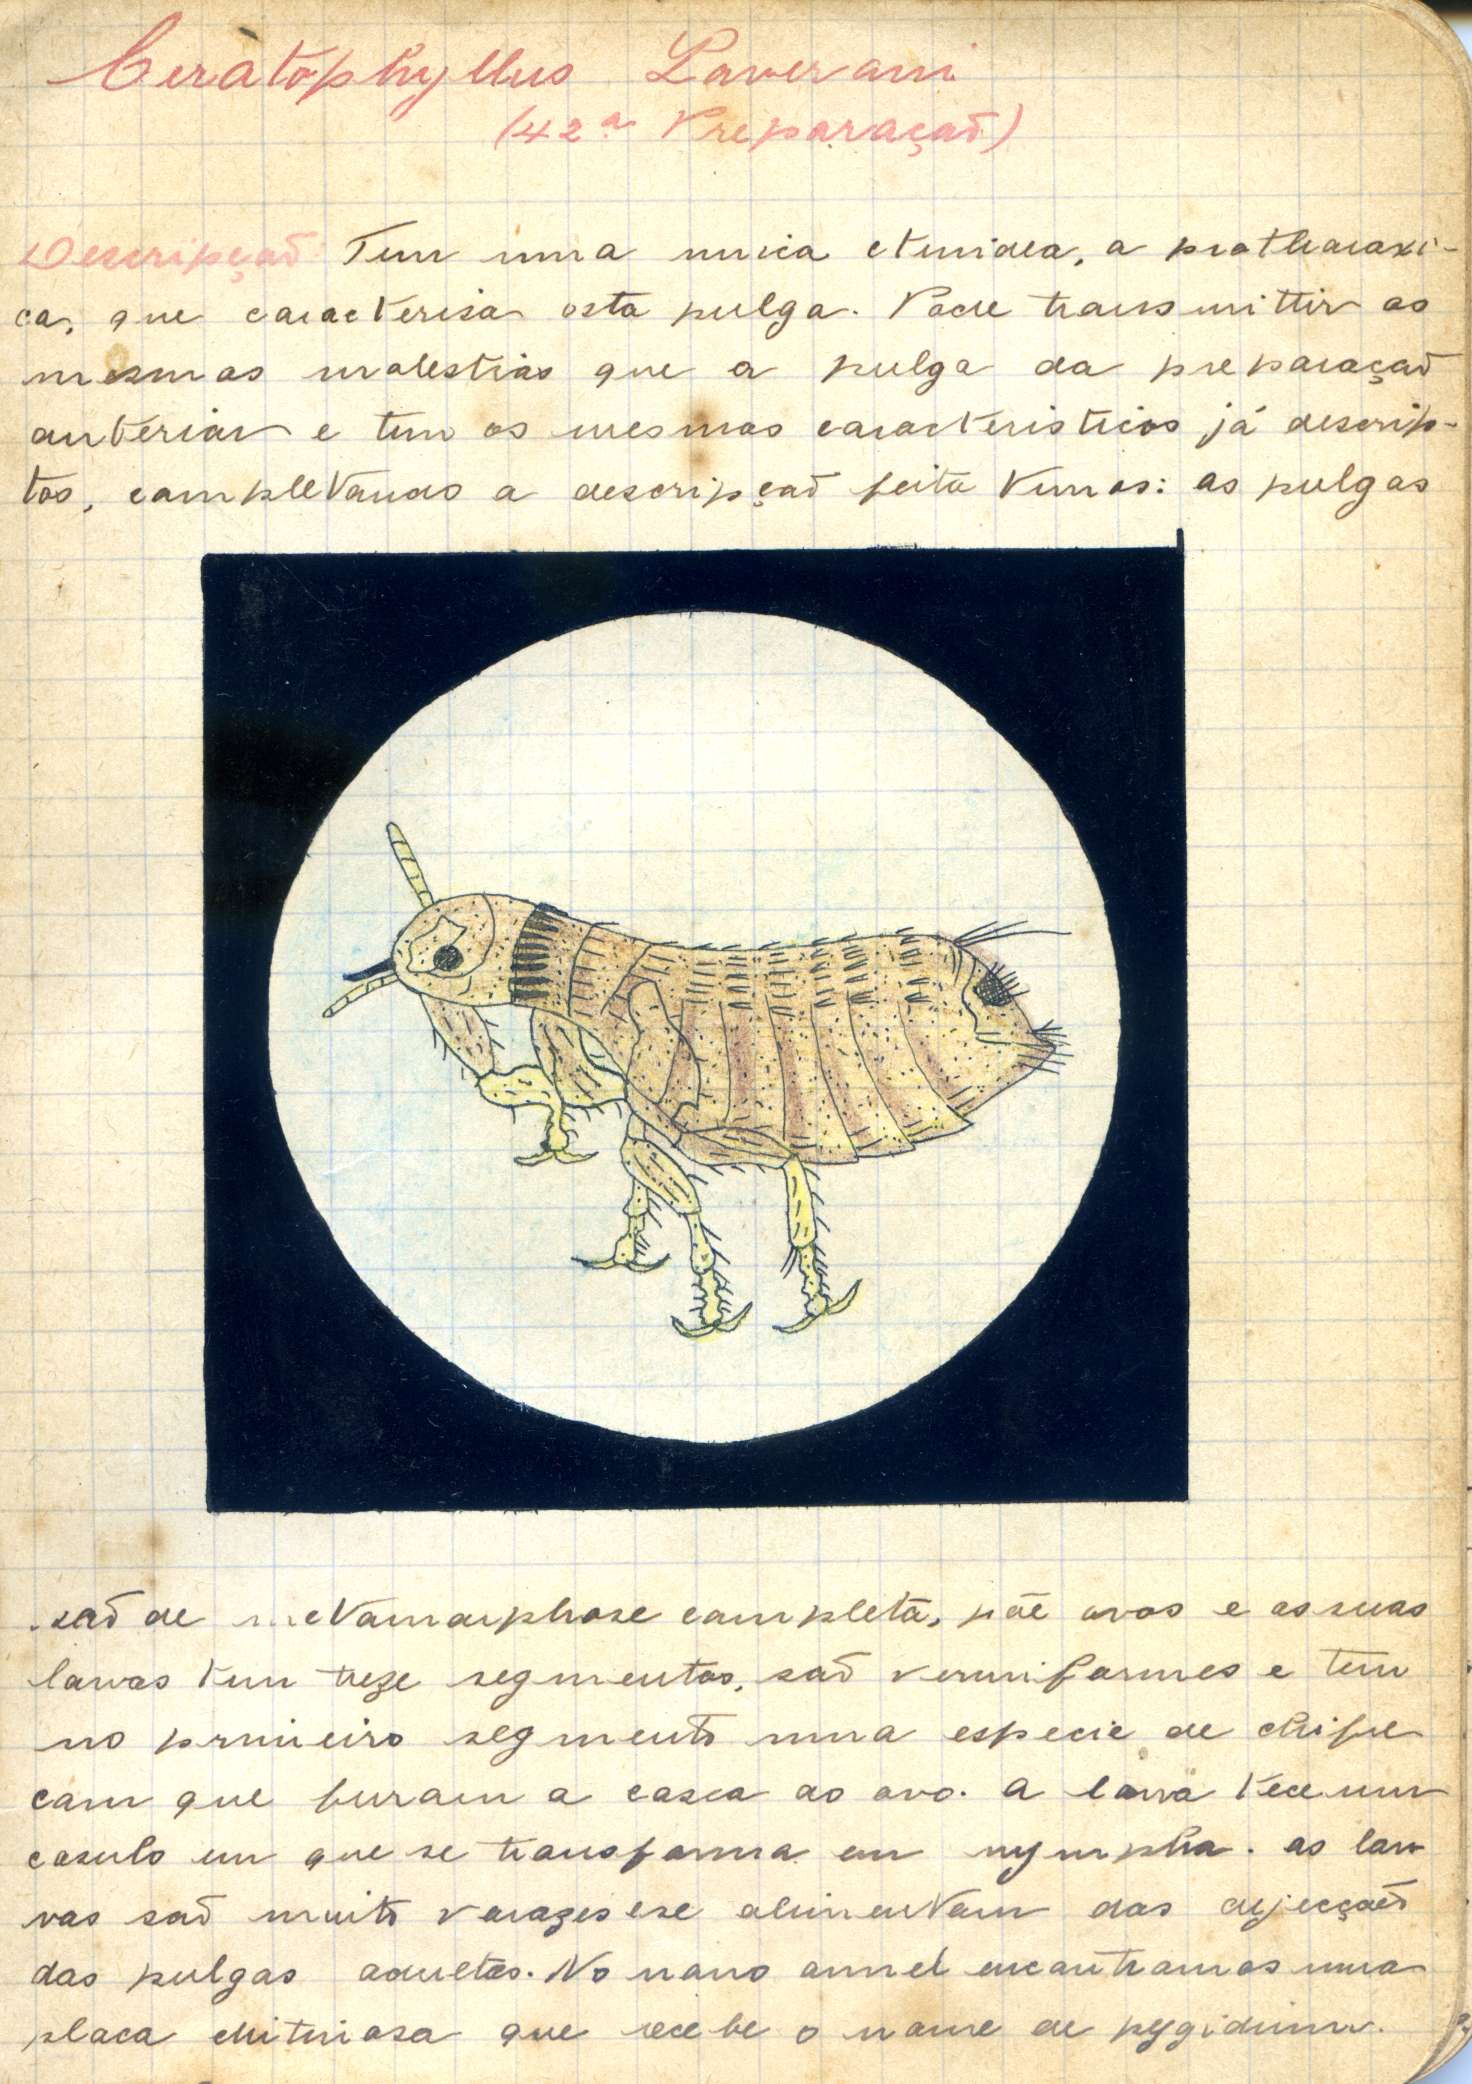 Ceratophyllus Laverani
(42ª Preparaçaõ)
Descripçaõ: Tem uma unica ctenidea, a prothoraxi-
ca, que caracterisa esta pulga. Pode transmittir as
mesmas molestias que a pulga da preparaçaõ
anterior e tem os mesmos caracteristicos já descrip-
tos, completando a descripçaõ feita temos: as pulgas
saõ de metamorphose completa, põe ovos e as suas
larvas tem treze segmentos, saõ vermiformes e tem
no primeiro segmento uma especie de chifre
com que furam a casca do ovo. A larva tece um
casulo em que se transforma em nympha. As lar
vas saõ muito vorazes e se alimentam das dejecções
das pulgas adultas. No nono annel encontramos uma
placa chitinosa que recebe o nome de pygidium.